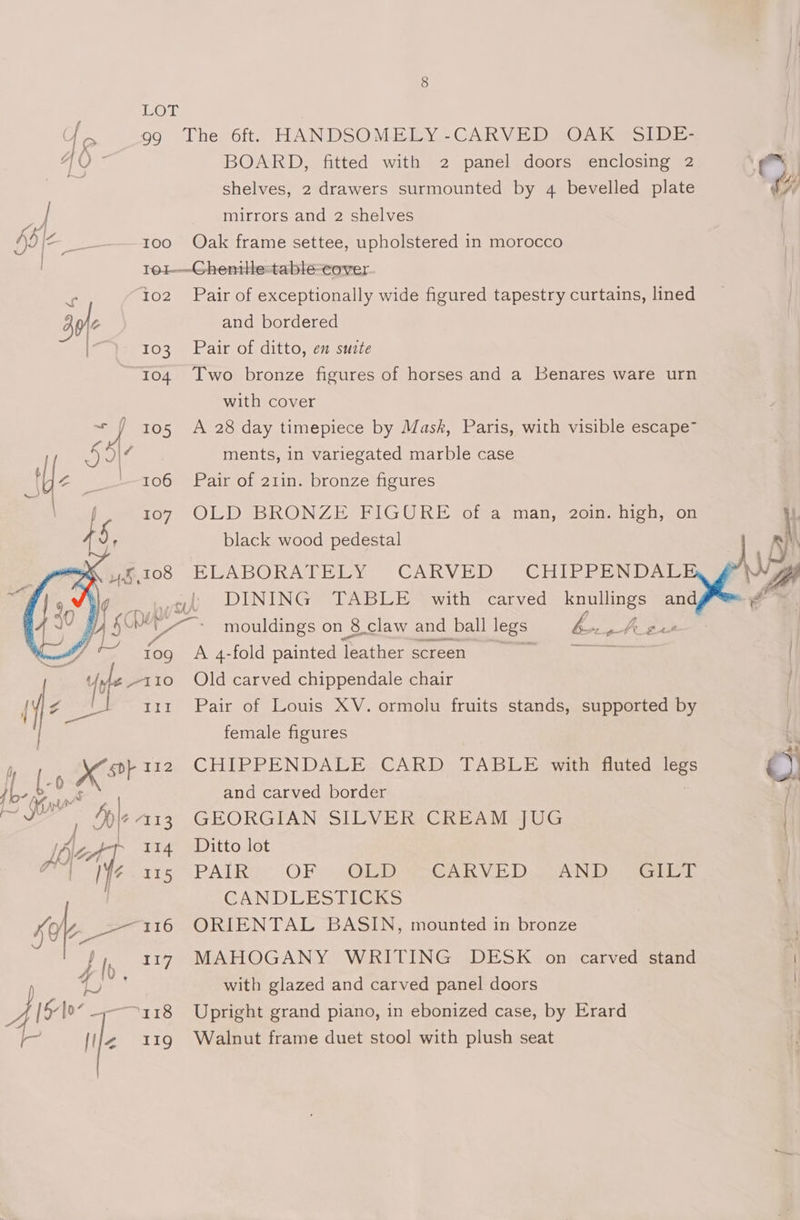 8
LOT
99 The 6ft. HANDSOMELY-CARVED OAK SIDE-
BOARD, fitted with 2 panel doors enclosing 2
shelves, 2 drawers surmounted by 4 bevelled plate
mirrors and 2 shelves
100 Oak frame settee, upholstered in morocco
101 Chenille table cover
102 Pair of exceptionally wide figured tapestry curtains, lined
and bordered
103 Pair of ditto, en suite
104 Two bronze figures of horses and a Benares ware urn
with cover
105 A 28 day timepiece by Mask, Paris, with visible escape-
ments, in variegated marble case
106 Pair of 21in. bronze figures
107 OLD BRONZE FIGURE of a man, 20in. high, on
black wood pedestal
108 ELABORATELY CARVED CHIPPENDALE
DINING TABLE with carved knullings and
mouldings on 8 claw and ball legs
109 A 4-fold painted leather screen
110 Old carved chippendale chair
111 Pair of Louis XV. ormolu fruits stands, supported by
female figures
112 CHIPPENDALE CARD TABLE with fluted legs
and carved border
113 GEORGIAN SILVER CREAM JUG
114 Ditto lot
115 PAIR OF OLD CARVED AND GILT
CANDLESTICKS
116 ORIENTAL BASIN, mounted in bronze
117 MAHOGANY WRITING DESK on carved stand
with glazed and carved panel doors
118 Upright grand piano, in ebonized case, by Erard
119 Walnut frame duet stool with plush seat